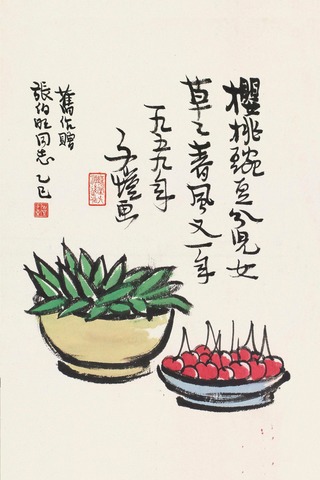 櫻桃豌豆分兒女
草草春風又一年
一九五九年
子愷画
舊作贈
張伯旺同志 乙巳